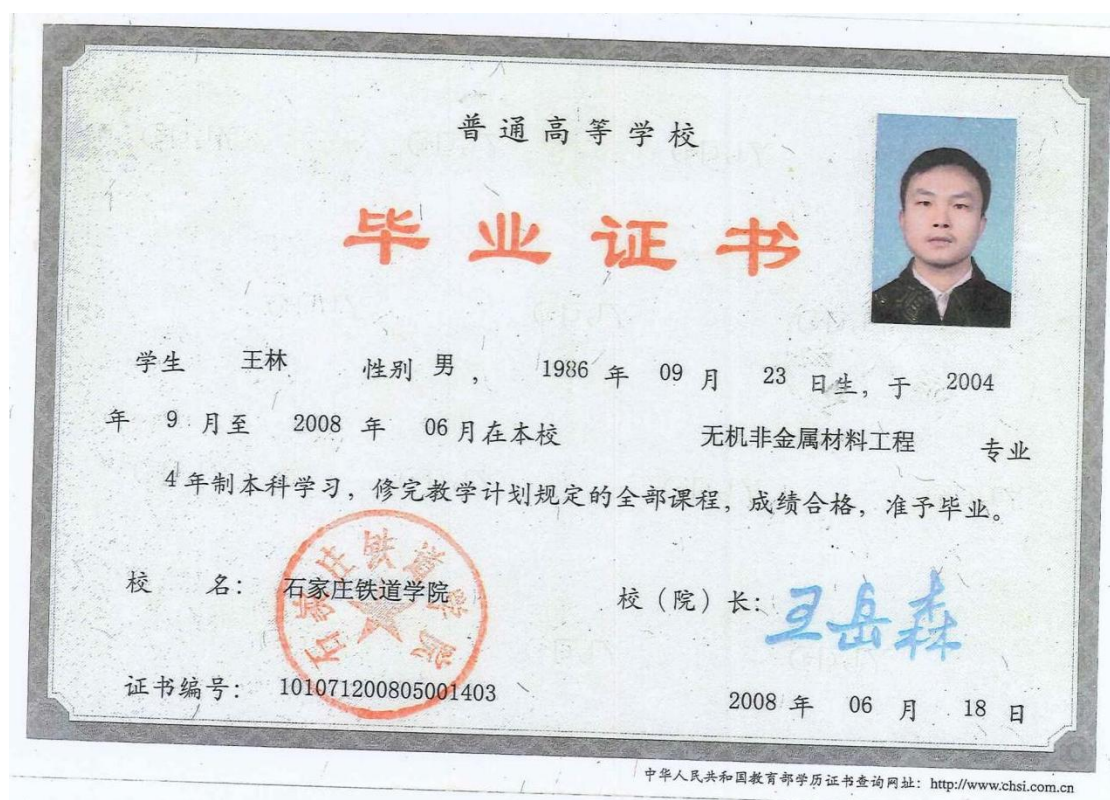 普通高等学校
毕业证书
学生 王林 性别 男 , 1986 年 09 月 23 日生, 于 2004
年 9 月至 2008 年 06 月在本校 无机非金属材料工程 专业
4 年制本科学习, 修完教学计划规定的全部课程, 成绩合格, 准予毕业。
石家庄铁道学院
校 名: 石家庄铁道学院 校（院）长: 王岳森
证书编号: 101071200805001403 2008 年 06 月 18 日
中华人民共和国教育部学历证书查询网址: http://www.chsi.com.cn